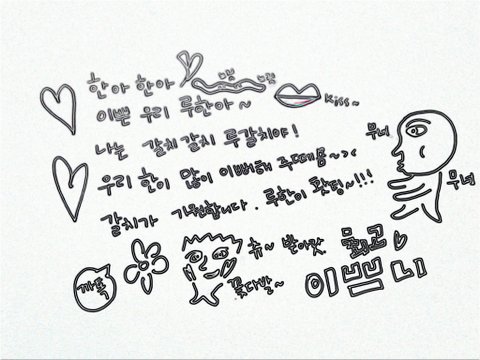 한아 한아
이쁜 우리 루한아~
kiss~
나는 갈치갈치 루갈치야!
우리 한이 많이 이뻐해 주떼욤~><
갈치가 기원합니다. 루한이 팟팅~!!!
무녀
무녀
까톡
츄~ 받아랏
꽃다발~
이쁘니